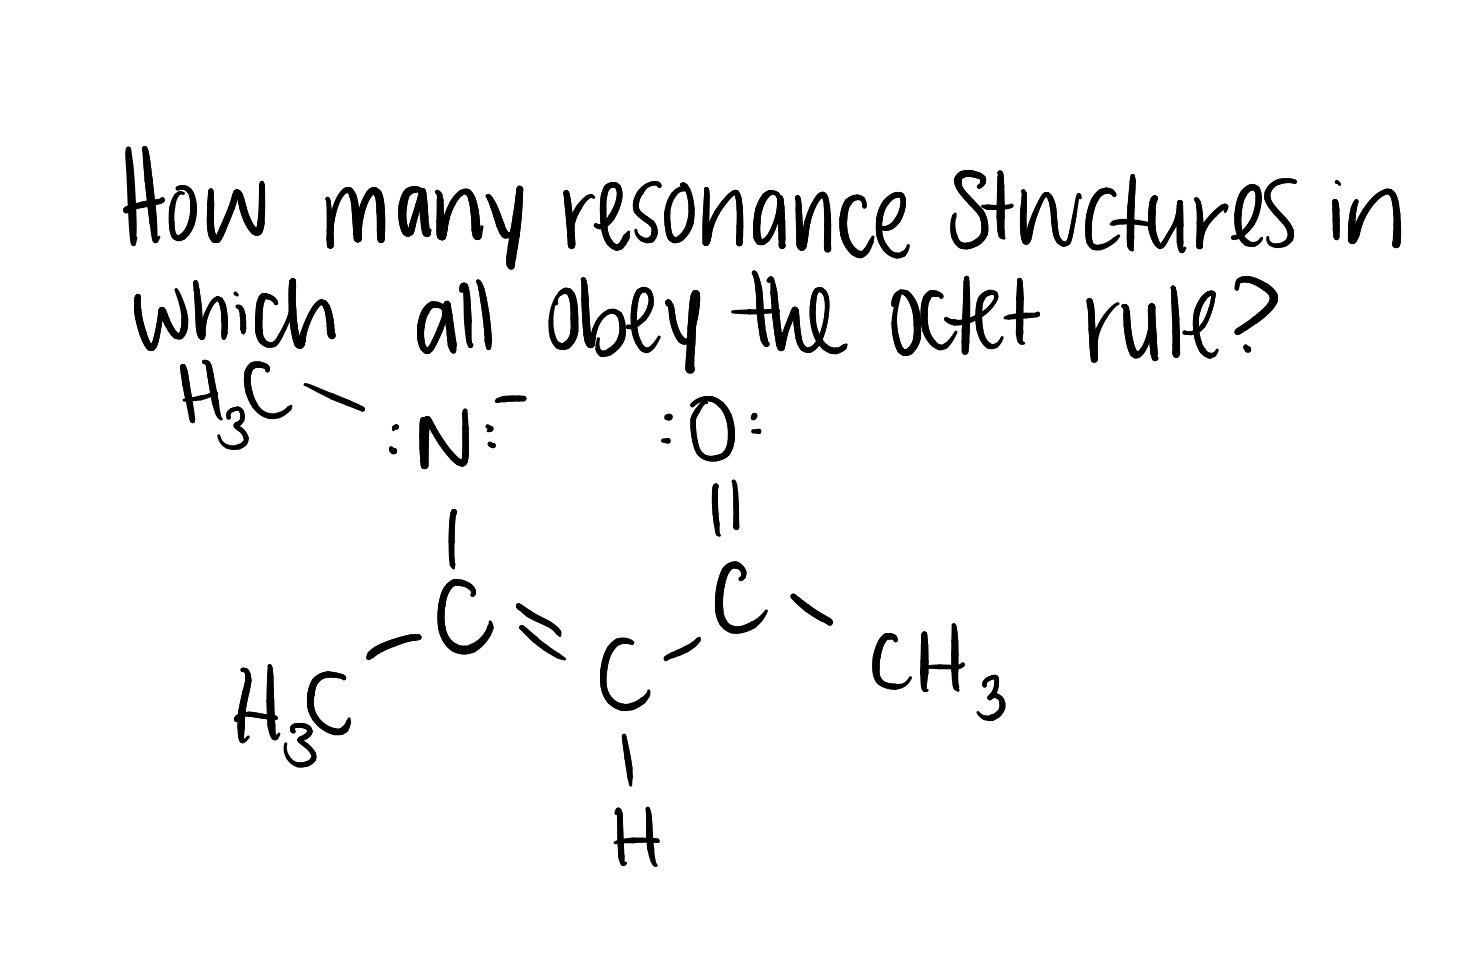 How many resonance structures in
which all obey the octet rule?
H₃C
:N:⁻ :O:
C C
H₃C C CH₃
H